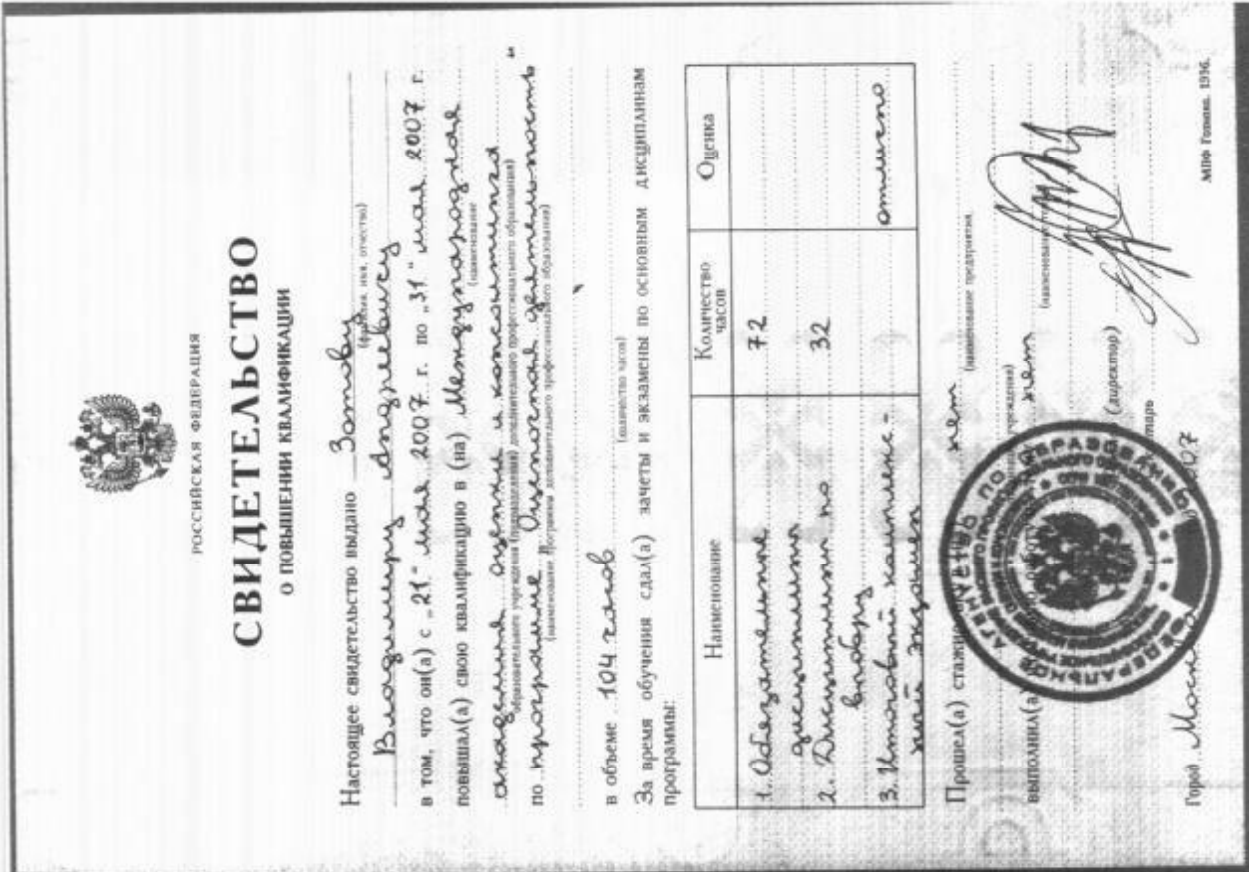 РОССИЙСКАЯ ФЕДЕРАЦИЯ
СВИДЕТЕЛЬСТВО
О ПОВЫШЕНИИ КВАЛИФИКАЦИИ
Настоящее свидетельство выдано Зотову
(фамилия, имя, отчество)
Владимиру Андреевичу
в том, что он(а) с „21" мая 2007 г. по „31" мая 2007 г.
повышал(а) свою квалификацию в (на) Международная
(наименование
академия оценки и консалтинга
образовательного учреждения (подразделения) дополнительного профессионального образования)
по программе „Оценочная деятельность"
(наименование программы дополнительного профессионального образования)
в объеме 104 часов
(количество часов)
За время обучения сдал(а) зачеты и экзамены по основным дисциплинам
программы:
Наименование Количество часов Оценка
1. Обязательные 72
дисциплины
2. Дисциплины по 32
выбору
3. Итоговый комплекс-
ный экзамен отлично
Прошел(а) нет
(наименование предприятия,
учреждения)
выполнил(а) нет
(наименование
(директор)
Город Москва 2007
ФЕДЕРАЛЬНОЕ АГЕНТСТВО ПО ОБРАЗОВАНИЮ
МПФ Гознака. 1996.